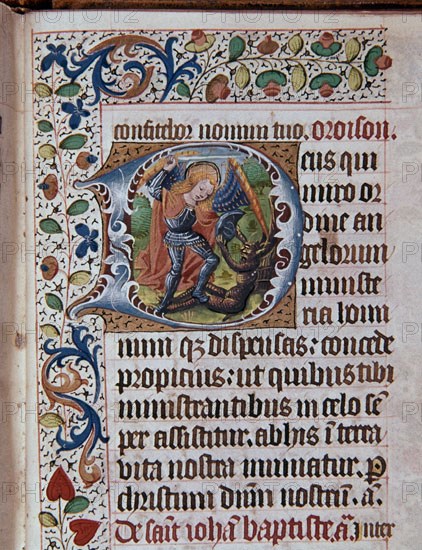 confitebor nomini tuo. Oroison.
Deus qui
miro or
dine an
gelorum
ministe
ria homi
num qz dispensas: concede
propicius: ut quibus tibi
ministrantibus in celo sē
per assistitur. ab his ī terra
vita nostra muniatur. p
christum dñm nostrū. a.
De saīt iohā baptiste. ā. Inter